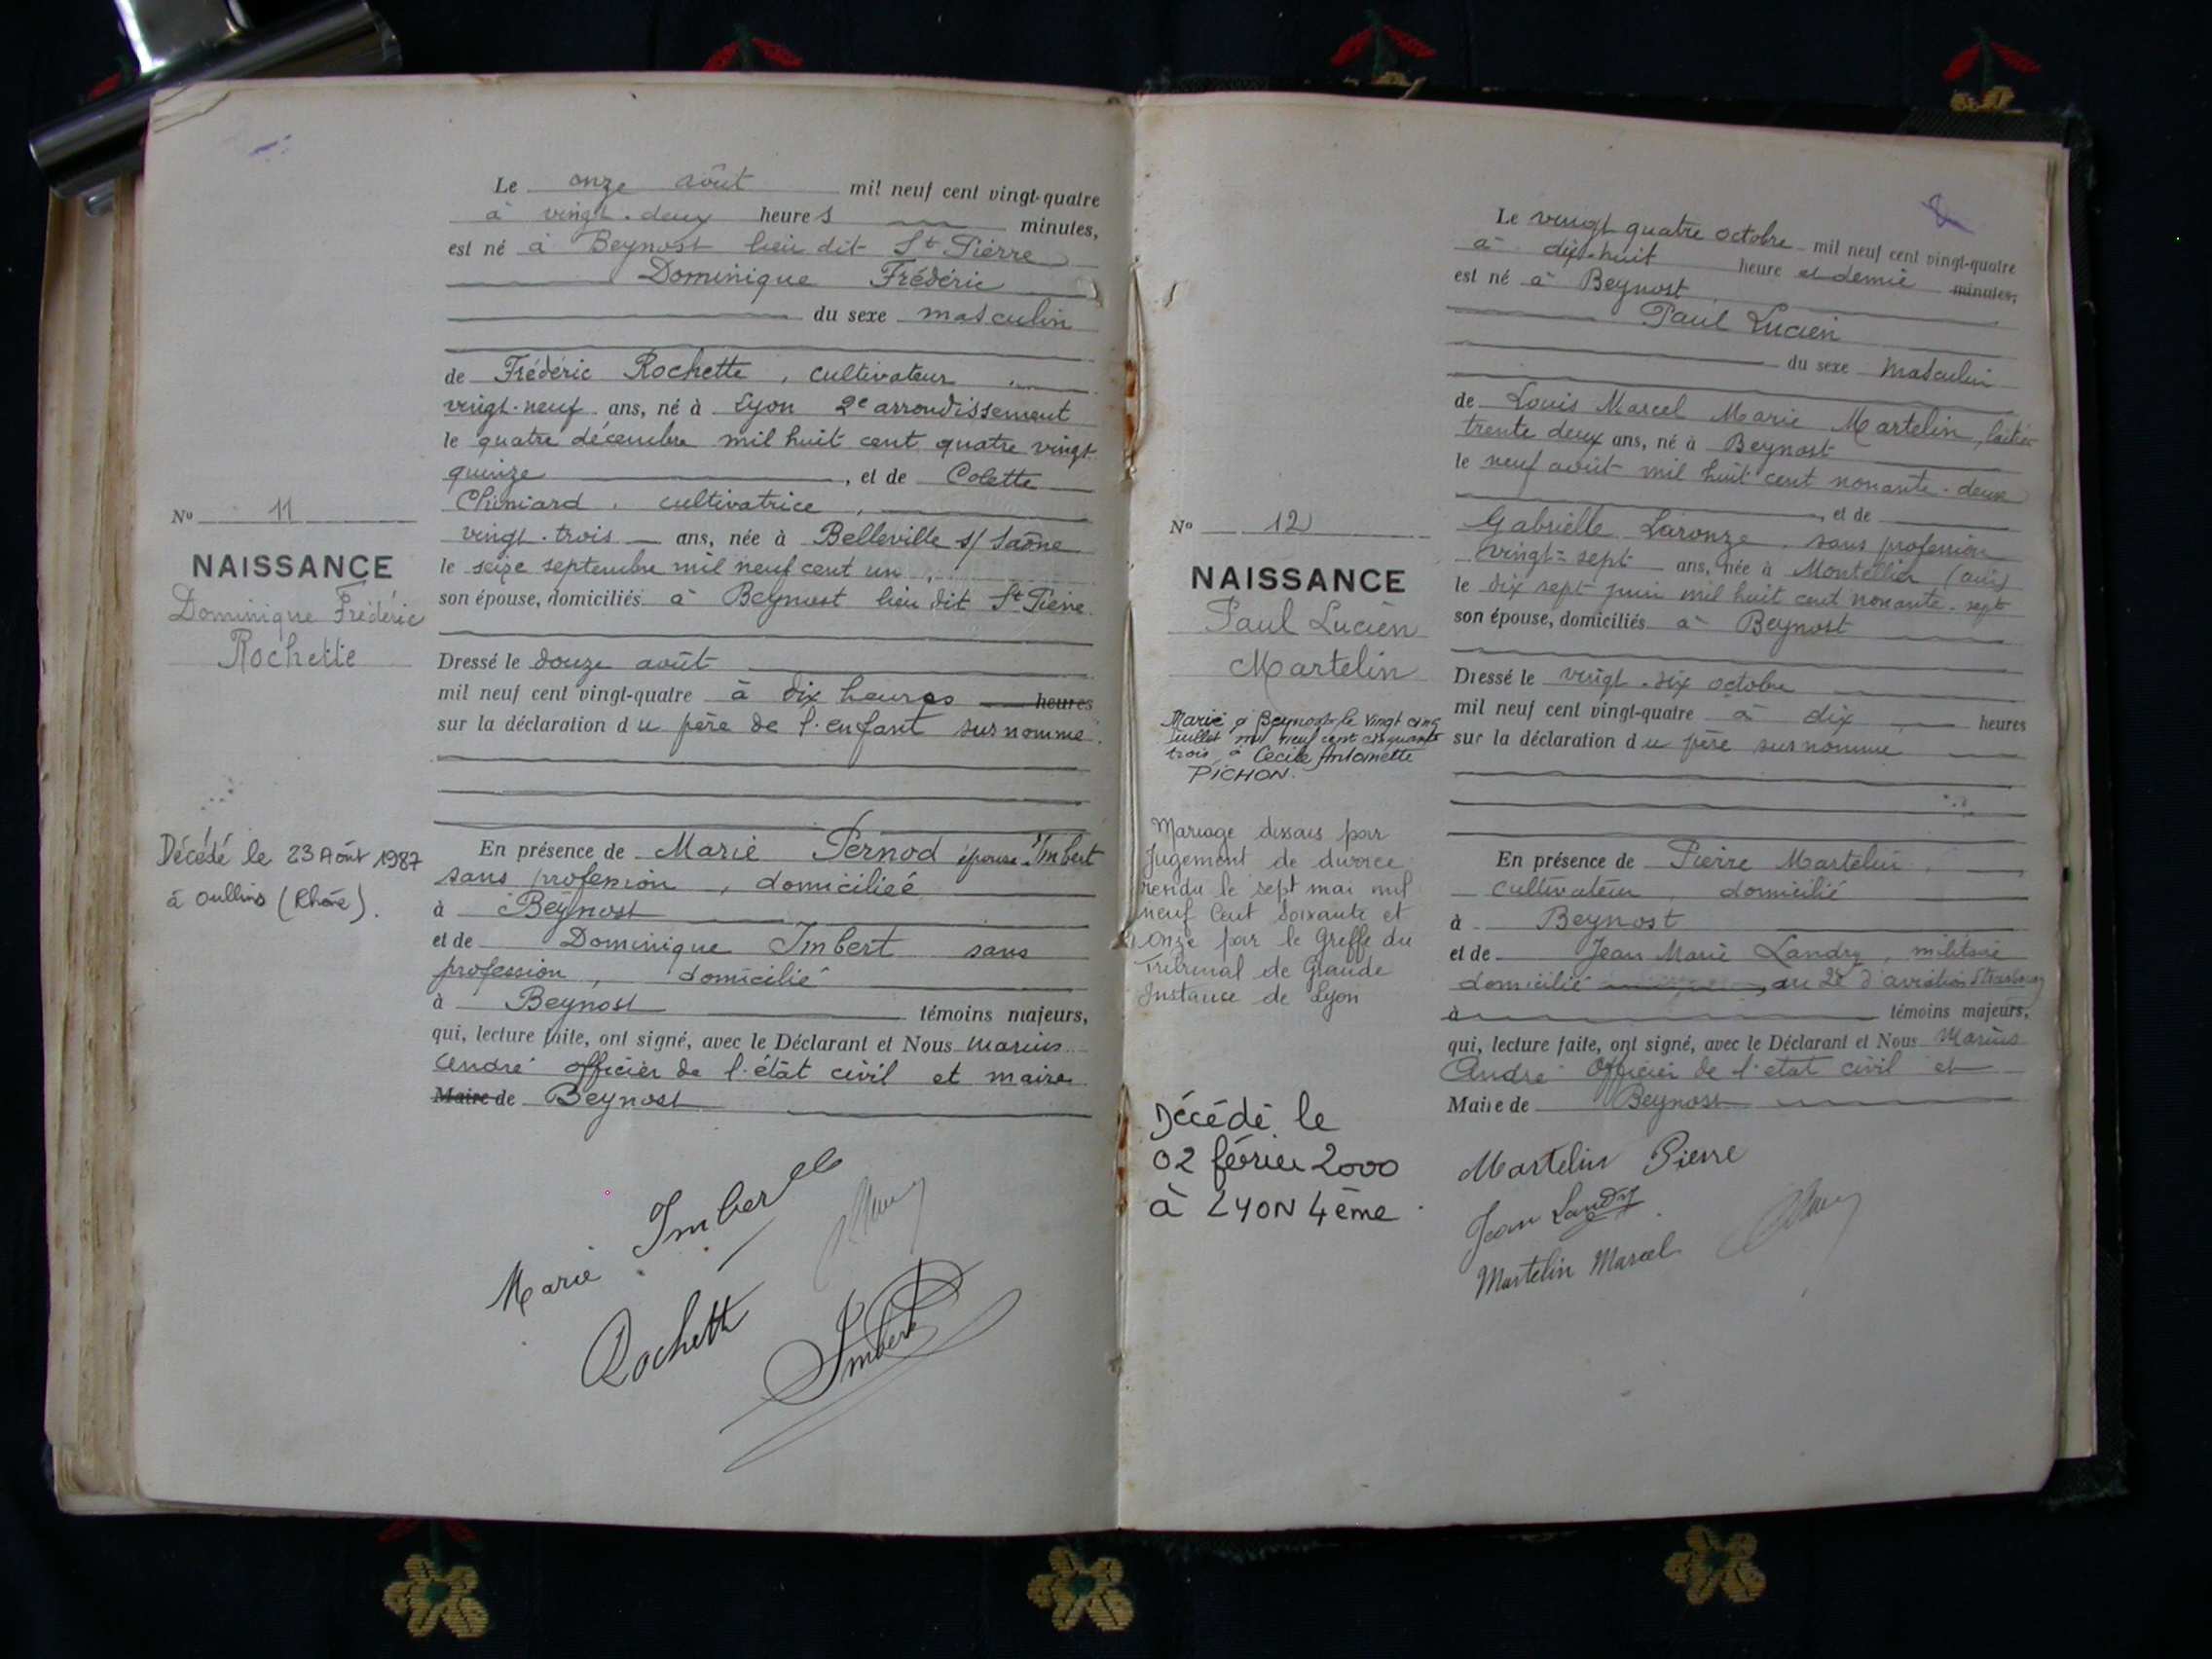 Le onze août mil neuf cent vingt-quatre
à vingt-deux heures minutes,
est né à Beynost lieu dit St Pierre
Dominique Frédéric
du sexe masculin
de Frédéric Rochette, cultivateur,
vingt-neuf ans, né à Lyon 2e arrondissement
le quatre décembre mil huit cent quatre vingt
quinze, et de Colette
Chiniard, cultivatrice,
vingt-trois ans, née à Belleville s/ Saône
le seize septembre mil neuf cent un,
son épouse, domiciliés à Beynost lieu dit St Pierre
Dressé le douze août
mil neuf cent vingt-quatre à dix heures heures
sur la déclaration du père de l'enfant surnommé.
En présence de Marie Pernod épouse Imbert
sans profession, domiciliée
à Beynost
et de Dominique Imbert sans
profession, domicilié
à Beynost témoins majeurs,
qui, lecture faite, ont signé, avec le Déclarant et Nous Marius
André officier de l'état civil et maire
Maire de Beynost
Marie Imbert
Rochette
Imbert
No 11
NAISSANCE
Dominique Frédéric
Rochette
Décédé le 23 Août 1987
à Oullins (Rhône).
Le vingt quatre octobre mil neuf cent vingt-quatre
à dix-huit heure et demie minutes,
est né à Beynost
Paul Lucien
du sexe masculin
de Louis Marcel Marie Martelin, laitier
trente deux ans, né à Beynost
le neuf août mil huit cent nonante-deux
et de
Gabrielle Laronze, sans profession
vingt-sept ans, née à Montellier (ain)
le dix sept juin mil huit cent nonante-sept
son épouse, domiciliés à Beynost
Dressé le vingt-six octobre
mil neuf cent vingt-quatre à dix heures
sur la déclaration du père surnommé
En présence de Pierre Martelin
cultivateur, domicilié
à Beynost
et de Jean Marie Landry, militaire
domicilié au 2e d'aviation Strasbourg
à témoins majeurs,
qui, lecture faite, ont signé, avec le Déclarant et Nous Marius
André Officier de l'état civil et
Maire de Beynost
Martelin Pierre
Jean Landry
Martelin Marcel
No 12
NAISSANCE
Paul Lucien
Martelin
Marié à Beynost le vingt cinq
juillet mil neuf cent cinquante
trois à Cécile Antoinette
PICHON.
Mariage dissous par
Jugement de divorce
rendu le sept mai mil
neuf Cent Soixante et
Onze par le Greffe du
Tribunal de Grande
Instance de Lyon
Décédé le
02 février 2000
à LYON 4ème.